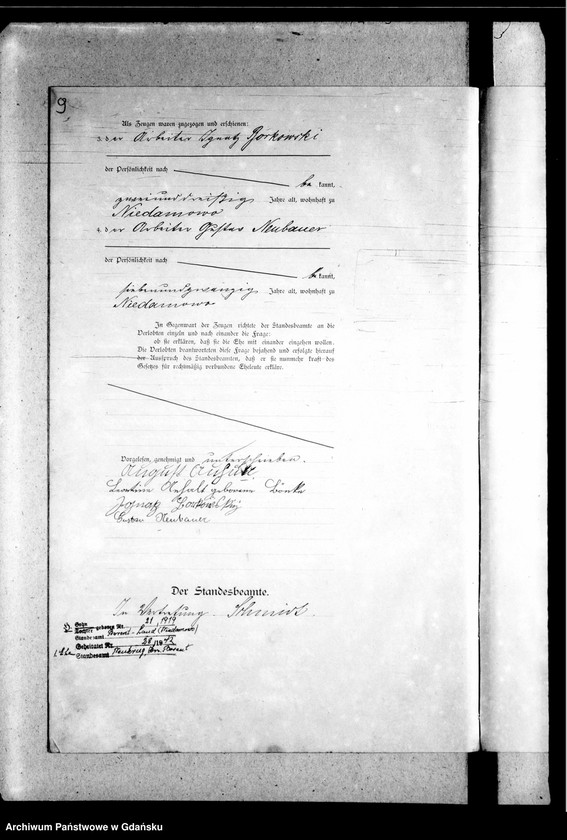 9
Als Zeugen waren zugezogen und erschienen:
3. der Arbeiter Ignatz Borkowski
der Persönlichkeit nach
be kannt,
zweiunddreißig Jahre alt, wohnhaft zu
Niedamowo
4. der Arbeiter Gustav Neubauer
der Persönlichkeit nach
be kannt,
siebenundzwanzig Jahre alt, wohnhaft zu
Niedamowo
In Gegenwart der Zeugen richtete der Standesbeamte an die
Verlobten einzeln und nach einander die Frage:
ob sie erklären, daß sie die Ehe mit einander eingehen wollen.
Die Verlobten beantworteten diese Frage bejahend und erfolgte hierauf
der Ausspruch des Standesbeamten, daß er sie nunmehr kraft des
Gesetzes für rechtmäßig verbundene Eheleute erkläre.
Vorgelesen, genehmigt und unterschrieben.
August
Leontine Anhalt geborene
Ignatz Borkowski
Gustav Neubauer
Der Standesbeamte.
In Vertretung. Schmidt.
Sohn
Tochter geboren Nr. 21/1919
Standesamt Berent-Land (Niedamowo)
Geheiratet Nr.
Standesamt